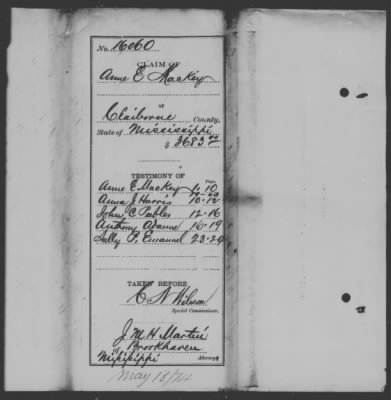 No. 16060
CLAIM OF
Anne E Mackey
OF
Claiborne County,
State of Mississippi
$ 3683.00
TESTIMONY OF
Page.
Anne E Mackey 1-10
Anna J Harris 10-12
John C Peebles 12-16
Anthony Adams 16-19
Sally P. Emanuel 23-24
TAKEN BEFORE
C N Wilson
Special Commissioner.
J. M H. Martin
of Brookhaven
Mississippi Attorney
May 18/74